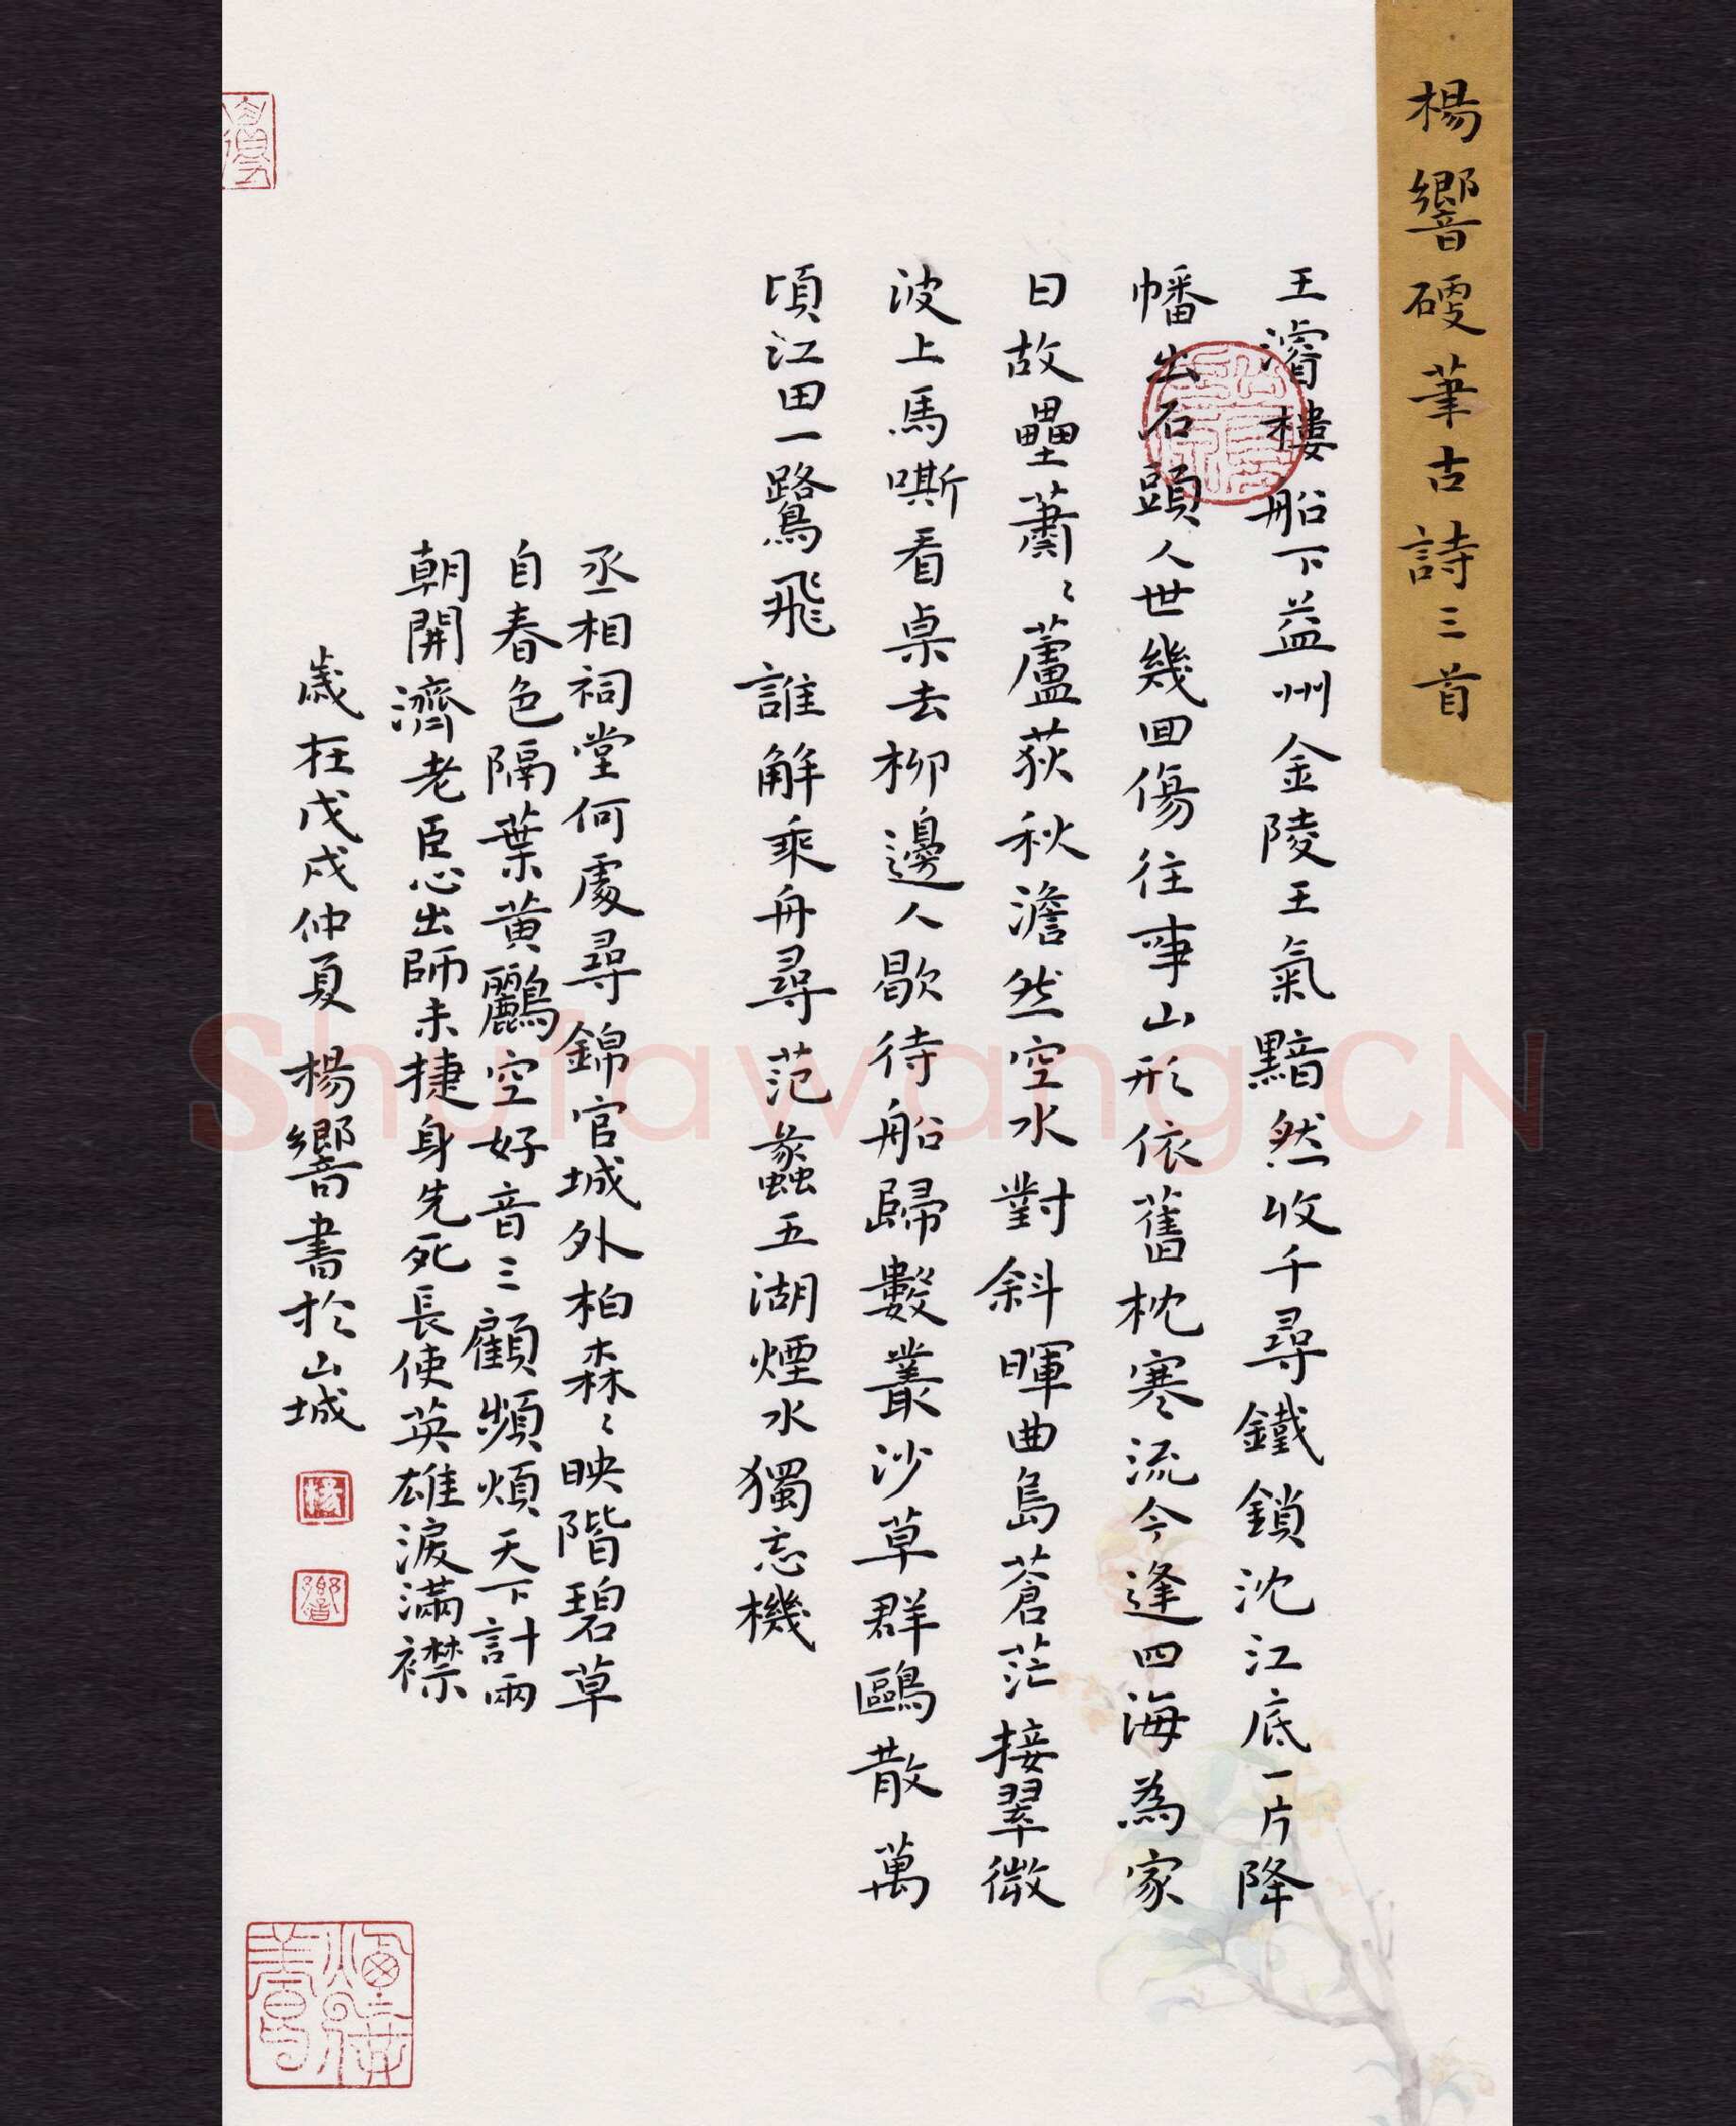 楊響硬筆古詩三首
王濬樓船下益州金陵王氣黯然收千尋鐵鎖沈江底一片降
幡出石頭人世幾回傷往事山形依舊枕寒流今逢四海為家
日故壘蕭〻蘆荻秋澹然空水對斜暉曲島蒼茫接翠微
波上馬嘶看桌去柳邊人歇待船歸數叢沙草群鷗散萬
頃江田一鷺飛誰解乘舟尋范蠡五湖煙水獨忘機
丞相祠堂何處尋錦官城外柏森〻映階碧草
自春色隔葉黃鸝空好音三顧頻煩天下計兩
朝開濟老臣心出師未捷身先死長使英雄淚滿襟
歲在戊戌仲夏 楊響書於山城
楊
響
Shufawang.CN